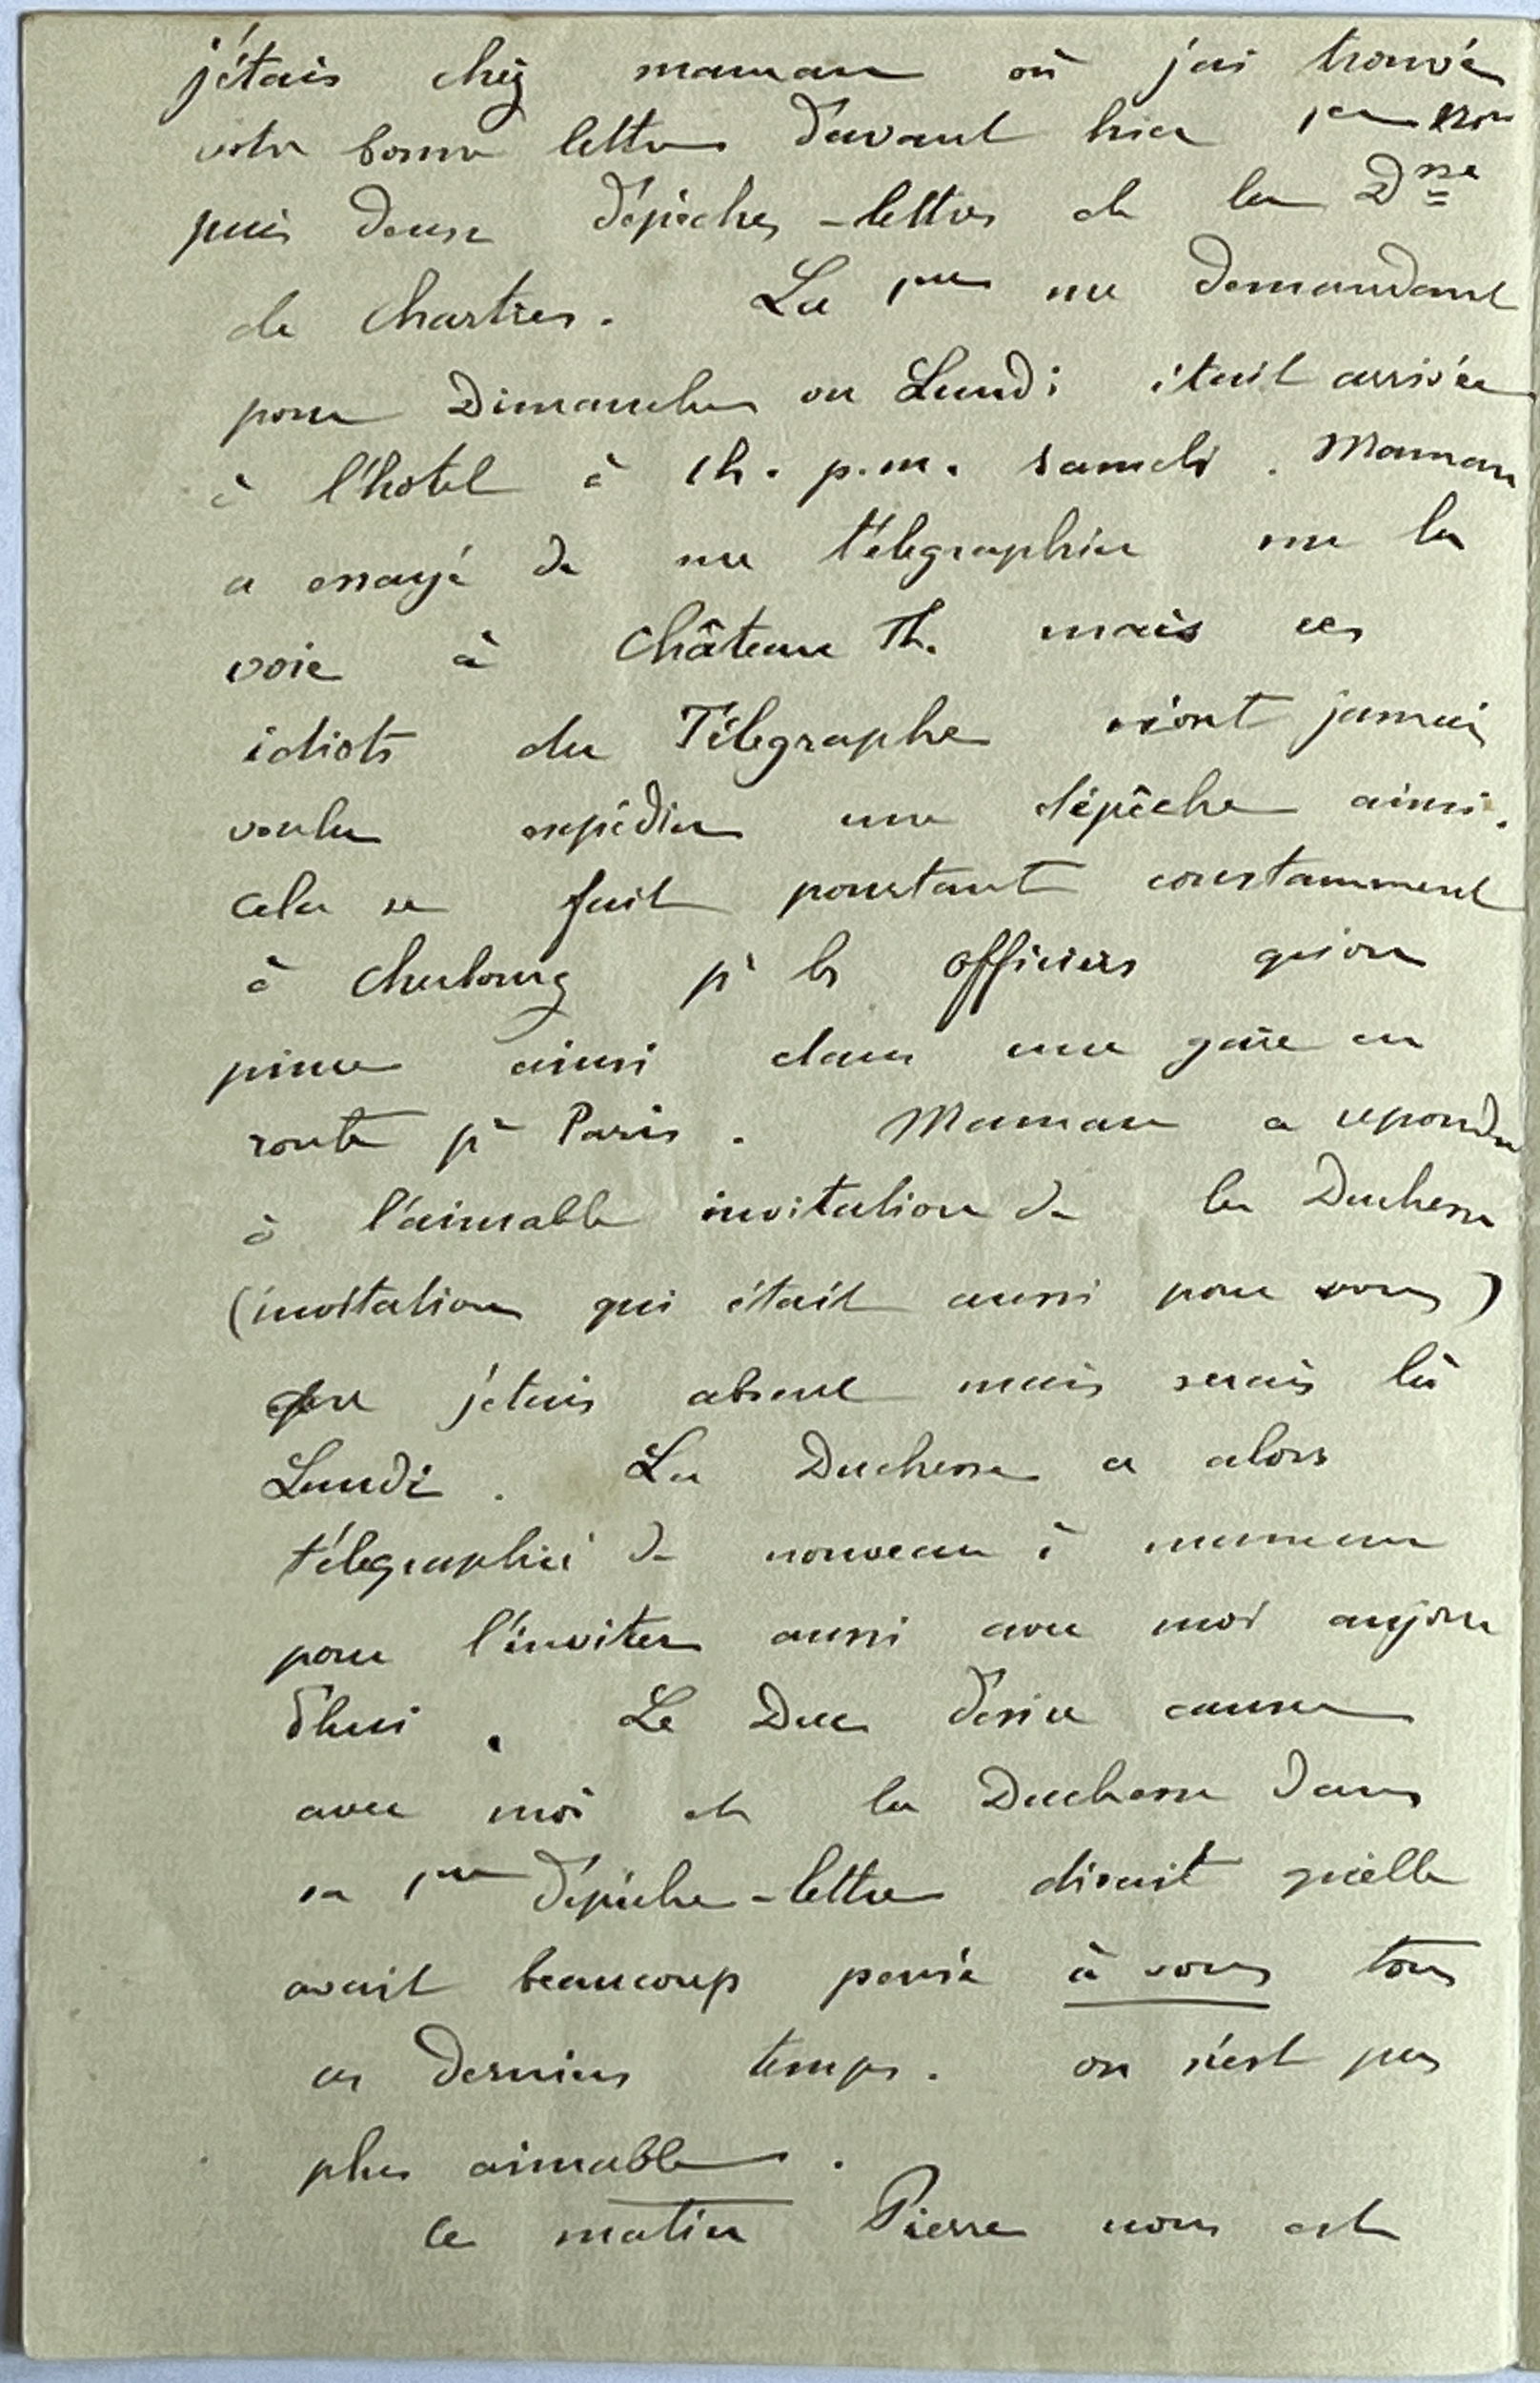 j'étais chez maman où j'ai trouvé
votre bonne lettre d'avant hier 1er Nov
puis deux dépêches-lettres de la Dsse
de Chartres. La 1ère me demandant
pour Dimanche ou Lundi était arrivée
à l'hotel à 1h. p.m. samedi. Maman
a essayé de me télégraphier sur la
voie à Château Th. mais ces
idiots du Télégraphe n'ont jamais
voulu expédier une dépêche ainsi.
Cela se fait pourtant constamment
à Cherbourg pr les officiers qu'on
pince ainsi dans une gare en
route pr Paris. Maman a repondu
à l'aimable invitation de la Duchesse
(invitation qui était aussi pour vous)
que j'etais absent mais serais là
Lundi. La Duchesse a alors
télégraphié de nouveau à maman
pour l'inviter aussi avec moi aujour
d'hui. Le Duc désire causer
avec moi et la Duchesse dans
sa 1ère dépêche-lettre disait qu'elle
avait beaucoup pensé à vous tous
ces derniers temps. on n'est pas
plus aimable.
Ce matin Pierre nous est